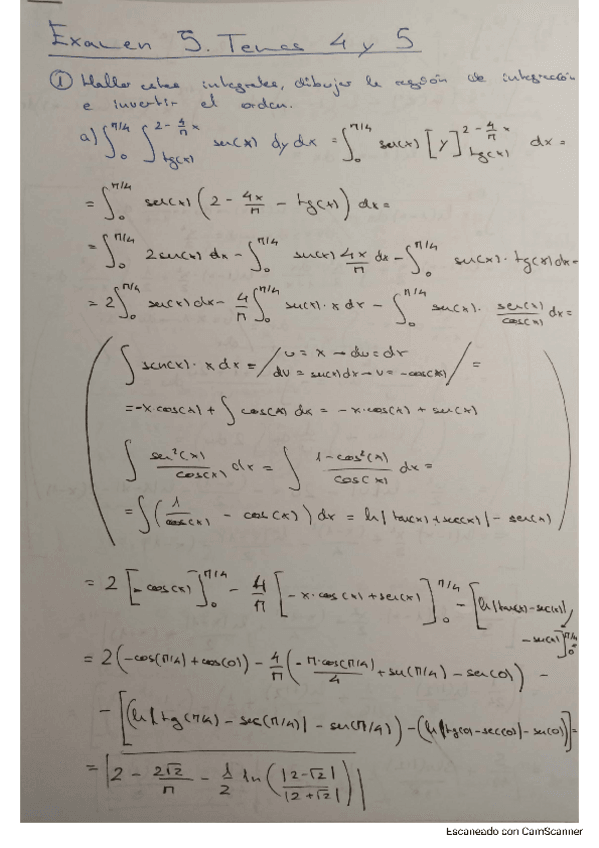 Examen 5. Temas 4 y 5
① Hallar estas integrales, dibujar la región de integración
e invertir el orden.
a) ∫₀^{π/4} ∫_{tg(x)}^{2 - 4/π x} sen(x) dy dx = ∫₀^{π/4} sen(x) [y]_{tg(x)}^{2 - 4/π x} dx =
= ∫₀^{π/4} sen(x) (2 - 4x/π - tg(x)) dx =
= ∫₀^{π/4} 2sen(x) dx - ∫₀^{π/4} sen(x) 4x/π dx - ∫₀^{π/4} sen(x) · tg(x) dx =
= 2 ∫₀^{π/4} sen(x) dx - 4/π ∫₀^{π/4} sen(x) · x dx - ∫₀^{π/4} sen(x) · sen(x)/cos(x) dx =
( ∫ sen(x) · x dx = / u = x → du = dx
dv = sen(x) dx → v = -cos(x) / =
= -x cos(x) + ∫ cos(x) dx = -x · cos(x) + sen(x)
∫ sen²(x)/cos(x) dx = ∫ 1 - cos²(x)/cos(x) dx =
= ∫ (1/cos(x) - cos(x)) dx = ln|tan(x) + sec(x)| - sen(x) )
= 2 [-cos(x)]₀^{π/4} - 4/π [-x · cos(x) + sen(x)]₀^{π/4} - [ln|tan(x) - sec(x)|
- sen(x)]₀^{π/4}
= 2 (-cos(π/4) + cos(0)) - 4/π (-π · cos(π/4)/4 + sen(π/4) - sen(0)) -
- [(ln|tg(π/4) - sec(π/4)| - sen(π/4)) - (ln|tg(0) - sec(0)| - sen(0))] =
= |2 - 2√2/π - 1/2 ln(|2-√2|/|2+√2|)|
Escaneado con CamScanner